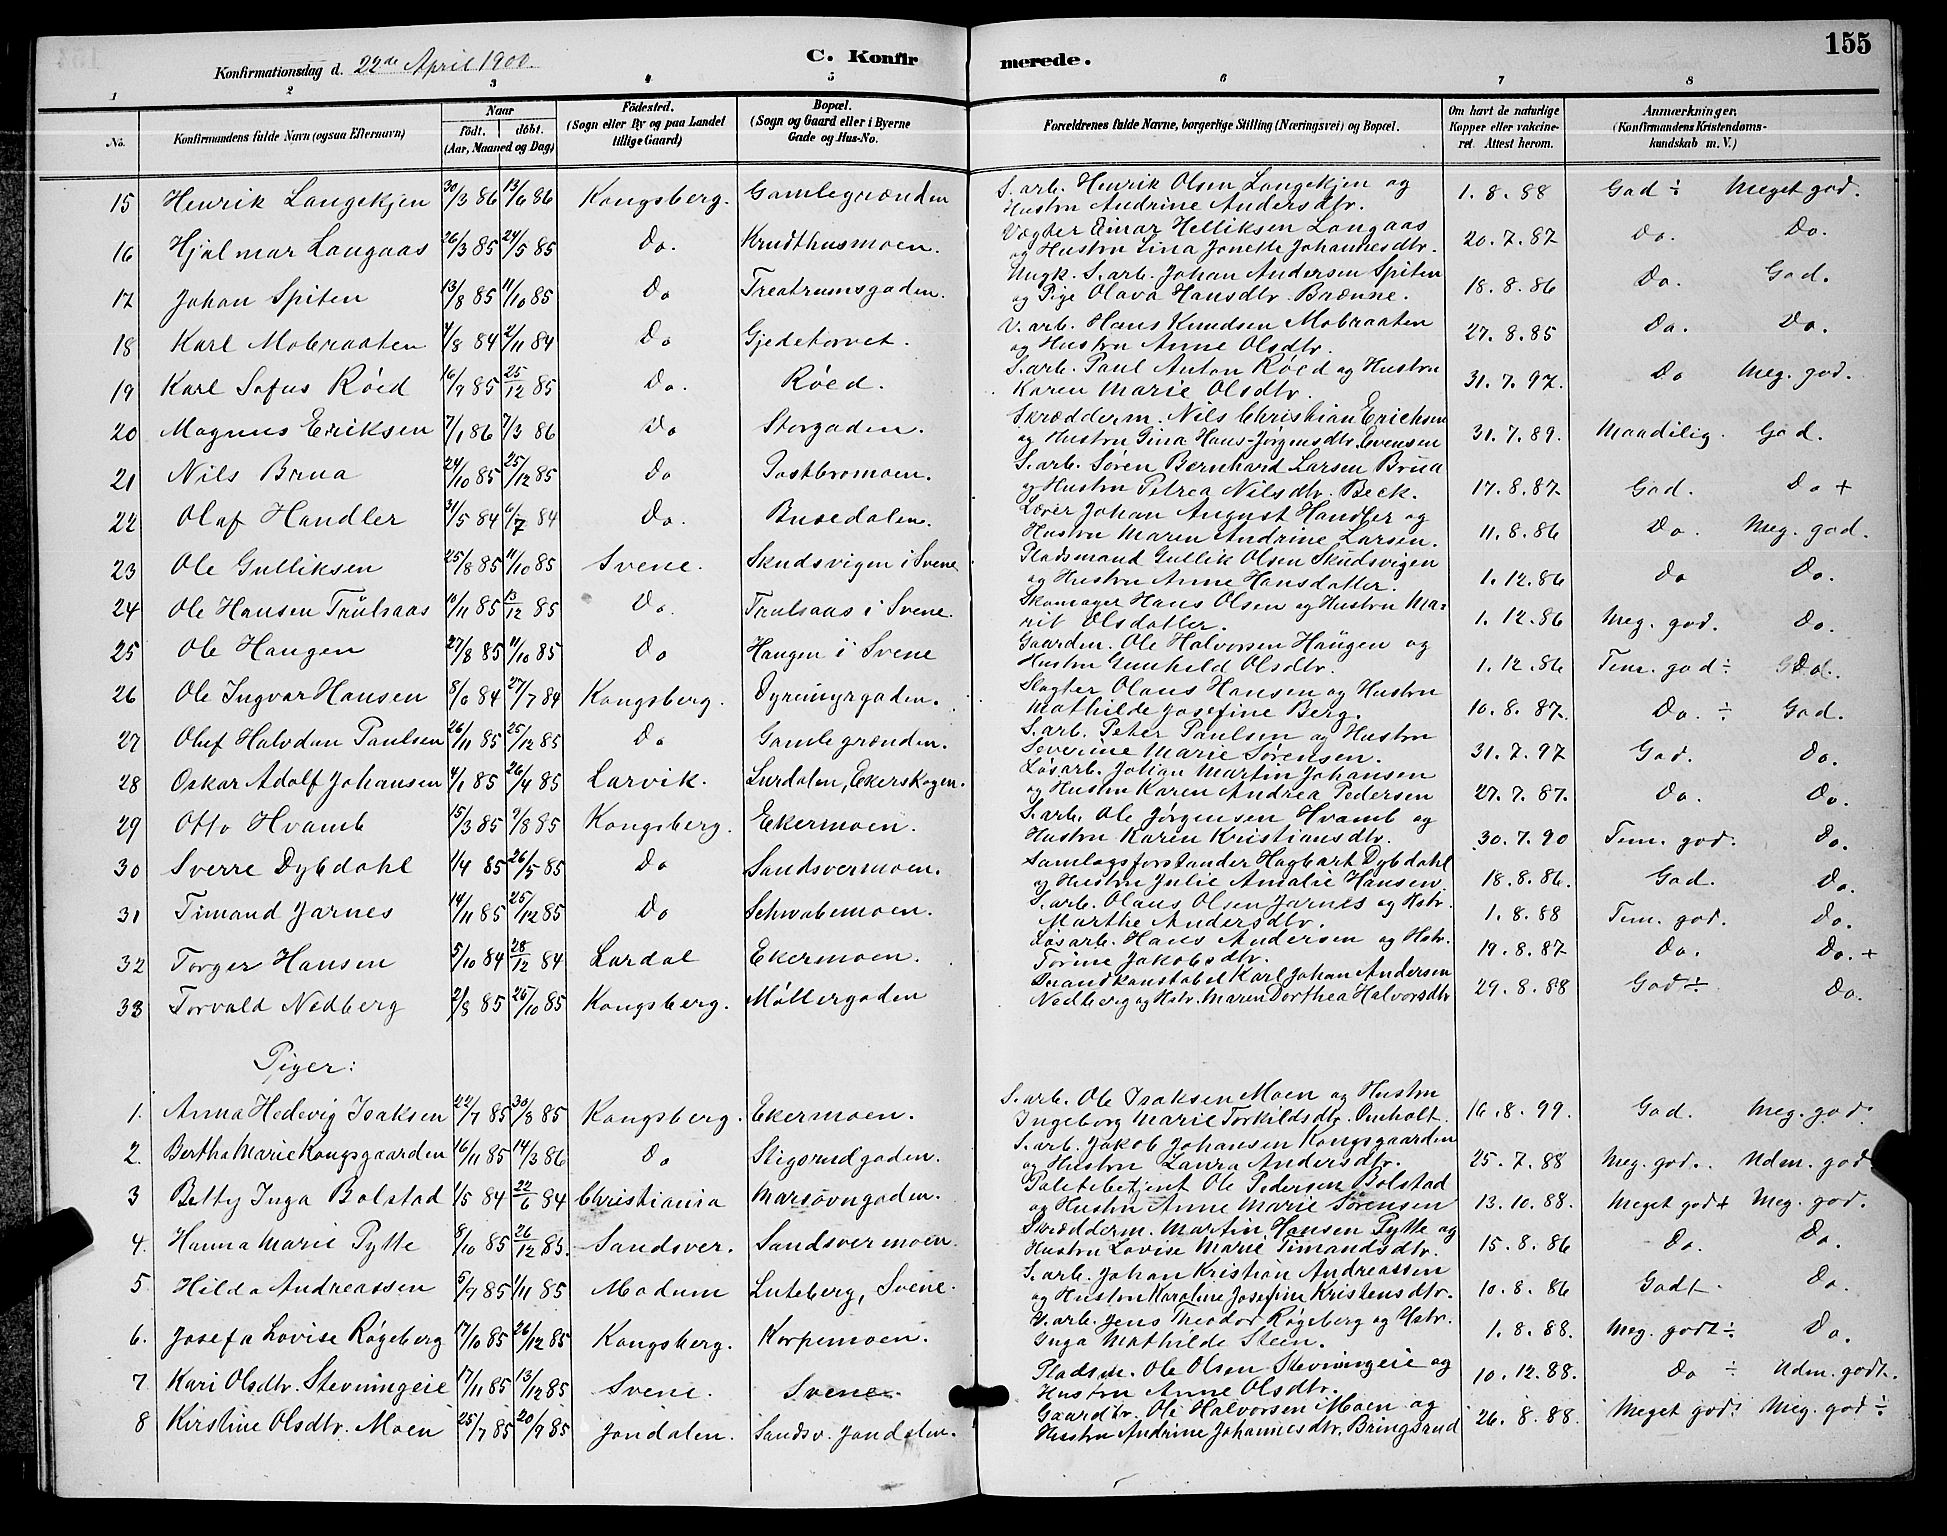 155
Konfirmationsdag d. 22de April 1900. C. Konfirmerede.
1 2 3 4 5 6 7 8
No. Konfirmandens fulde Navn (ogsaa Efternavn) Naar födt. döbt. (Aar, Maaned og Dag) Födested. (Sogn eller By og paa Landet tillige Gaard) Bopæl. (Sogn og Gaard eller i Byerne Gade og Hus-No. Forældrenes fulde Navne, borgerlige Stilling (Næringsvei) og Bopæl. Om havt de naturlige Kopper eller vakcineret. Attest herom. Anmærkninger. (Konfirmandens Kristendomskundskab m. V.)
15 Henrik Langekjen 30/3 86 13/6 86 Kongsberg. Gamlegrænden S. arb. Henrik Olsen Langekjen og Hustru Andrine Andersdtr. 1. 8. 88 God ÷ Meget god.
16 Hjalmar Langaas 26/3 85 24/5 85 Do. Krudthusmoen. Vægter Einar Helliksen Langaas og Hustru Lina Jonette Johannesdtr. 20. 7. 87 Do. Do.
17 Johan Spiten 13/8 85 11/10 85 Do Treatrumsgaden. Ungk. S. arb. Johan Andersen Spiten og Pige Olava Hansdtr. Brænne. 18. 8. 86 Do. God.
18 Karl Mobraaten 7/8 84 2/11 84 Do Gjedetorvet. V. arb. Hans Knudsen Mobraaten og Hustru Anne Olsdtr. 27. 8. 85 Do. Do.
19 Karl Sofus Røed 16/9 85 25/12 85 Do. Røed. S. arb. Paul Anton Røed og Hustru Karen Marie Olsdtr. 31. 7. 97. Do Meg. god.
20 Magnus Eriksen 7/1 86 7/3 86 Do Storgaden. Skrædderm. Nils Christian Erichsen og Hustru Gina Hans-Jørgensdtr. Evensen 31. 7. 89. Maadilig. God.
21 Nils Brua 24/10 85 25/12 85 Do Tostbromoen. S. arb. Søren Bernhard Larsen Brua og Hustru Petrea Nilsdtr. Beck. 17. 8. 87. God. Do +
22 Olaf Handler 31/5 84 6/7 84 Do. Busedalen. Læver Johan August Handler og Hustru Maren Andrine Larsen. 11. 8. 86 Do. Meg. god.
23 Ole Gulliksen 25/8 85 11/10 85 Svene. Skudsvigen i Svene Pladsmand Gullik Olsen Skudsvigen og Hustru Anne Hansdatter. 1. 12. 86 Do Do.
24 Ole Hansen Trulsaas 10/11 85 13/12 85 Do. Trulsaas i Svene. Skomager Hans Olsen og Hustru Marit Olsdatter. 1. 12. 86 Meg. god. Do.
25 Ole Haugen 27/8 85 11/10 85 Do Haugen i Svene Gaarden. Ole Halvorsen Haugen og Hustru Gunhild Olsdtr. 1. 12. 86 Tem. god ÷ God.
26 Ole Ingvar Hansen 8/6 84 27/7 84 Kongsberg. Dyremyrgaden. Slagter Olaus Hansen og Hustru Mathilde Josefine Berg. 10. 8. 87. Do. ÷ God.
27 Oluf Halvdan Paulsen 26/11 85 25/12 85 Do Gamlegrænden. S. arb. Peter Paulsen og Hustru Severine Marie Sørensen. 31. 7. 97 God. Do.
28 Oskar Adolf Johansen 4/1 85 26/4 85 Larvik. Lurdalen, Ekerskogen. Løsarb. Johan Martin Johansen og Hustru Karen Andrea Pedersen 27. 7. 87. Do. Do.
29 Otto Hvamb 15/3 85 9/8 85 Kongsberg. Ekermoen. S. arb. Ole Jørgensen Hvamb og Hustru Karen Kristiansdtr. 30. 7. 90 Tem. god. Do.
30 Sverre Dybdahl 1/4 85 26/5 85 Do Sandsvermoen. Samlagsforstander Hagbart Dybdahl og Hustru Julie Amalie Hansen. 18. 8. 86. God. Do.
31 Timand Jarnes 14/11 85 25/12 85 Do Schwabemoen. S. arb. Olaus Olsen Jarnes og Hstr. Marthe Andersdtr. 1. 8. 88 Tem. god. Do.
32 Torger Hansen 5/10 84 28/12 84 Lardal Ekermoen. Løsarb. Hans Andersen og Hstr. Torine Jakobsdtr. 19. 8. 87 Do. Do. +
33 Torvald Nedberg 2/8 85 25/10 85 Kongsberg. Møllergaden Brandkonstabel Karl Johan Andersen Nedberg og Hstr. Maren Dorthea Halvorsdtr 29. 8. 88 God ÷ Do.
Piger:
1. Anna Hedevig Isaksen 22/7 85 30/8 85 Kongsberg. Ekermoen. S. arb. Ole Isaksen Moen og Hustru Ingeborg Marie Torkildsdtr. Omholt. 16. 8. 99. God. Meg. god.
2. Bertha Marie Kongsgaarden 16/11 85 14/3 86 Do Stigsrudgaden. S. arb. Jakob Johansen Kongsgaarden og Hustru Laura Andersdtr. 25. 7. 88 Meg. god. Udm. god
3 Betty Inga Bolstad 1/5 84 22/6 84 Christiania Marsovngaden. Politibetjent Ole Pedersen Bolstad og Hustru Anne Marie Sørensen 13. 10. 88. Meget god + Meg. god.
4. Hanna Marie Pytte 8/10 85 26/12 85. Sandsver. Sandsvermoen. Skrædderm. Martin Hansen Pytte og Hustru Lovise Marie Timandsdtr. 15. 8. 86 Do. Do.
5 Hilda Andreassen 5/7 85 1/11 85 Modum Luteberg, Svene. S. arb. Johan Kristian Andreassen og Hustru Karoline Josefine Kristensdtr. 10. 8. 86 Godt. Do.
6. Josefa Lovise Røgeberg 17/10 85 26/12 85 Kongsberg. Korpemoen. V. arb. Jens Theodor Røgeberg og Hstr. Inga Mathilde Steen. 1. 8. 88. Meg. godt ÷ Do.
7 Kari Olsdtr. Stevningeie 17/11 85 13/12 85 Svene. Svene. Pladsm. Ole Olsen Stevningeie og Hustru Anne Olsdtr. 10. 12. 88. Do ÷ Udm. godt.
8 Kirstine Olsdtr. Moen 25/7 85 20/9 85 Jondalen. Sandsv. Jondalen. Gaardbr. Ole Halvorsen Moen og Hustru Andrine Johannesdtr. Bringsrud 26. 8. 88. Meget god. Meg. god ÷